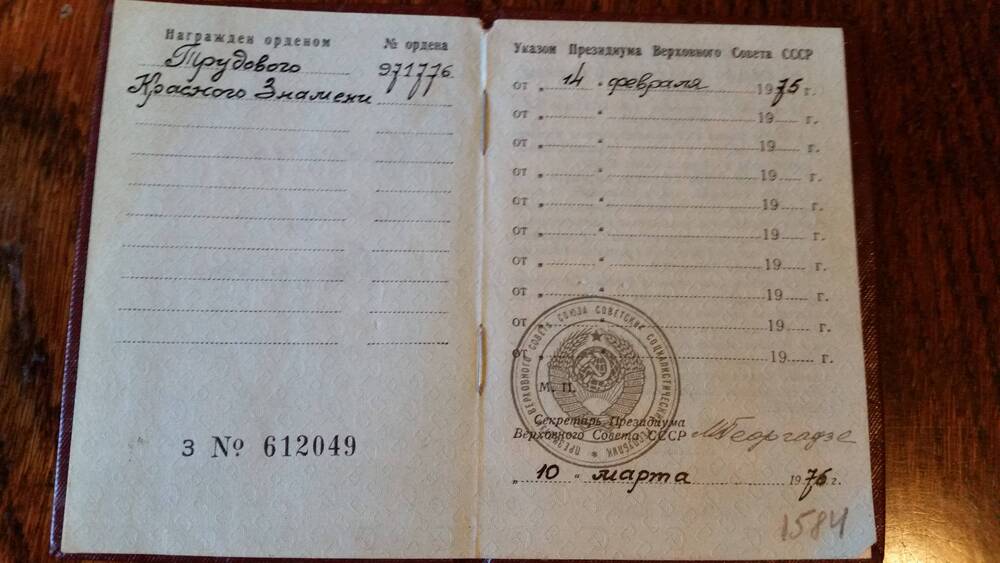 Награжден орденом № ордена
Трудового 971776
Красного Знамени
З № 612049
Указом Президиума Верховного Совета СССР
от „ 14 “ февраля 1975 г.
от „ “ 19 г.
от „ “ 19 г.
от „ “ 19 г.
от „ “ 19 г.
от „ “ 19 г.
от „ “ 19 г.
от „ “ 19 г.
от „ “ 19 г.
от „ “ 19 г.
ПРЕЗИДИУМ ВЕРХОВНОГО СОВЕТА СОЮЗА СОВЕТСКИХ СОЦИАЛИСТИЧЕСКИХ РЕСПУБЛИК
М. П.
Секретарь Президиума
Верховного Совета СССР МГеоргадзе
„ 10 “ марта 1976 г.
1584